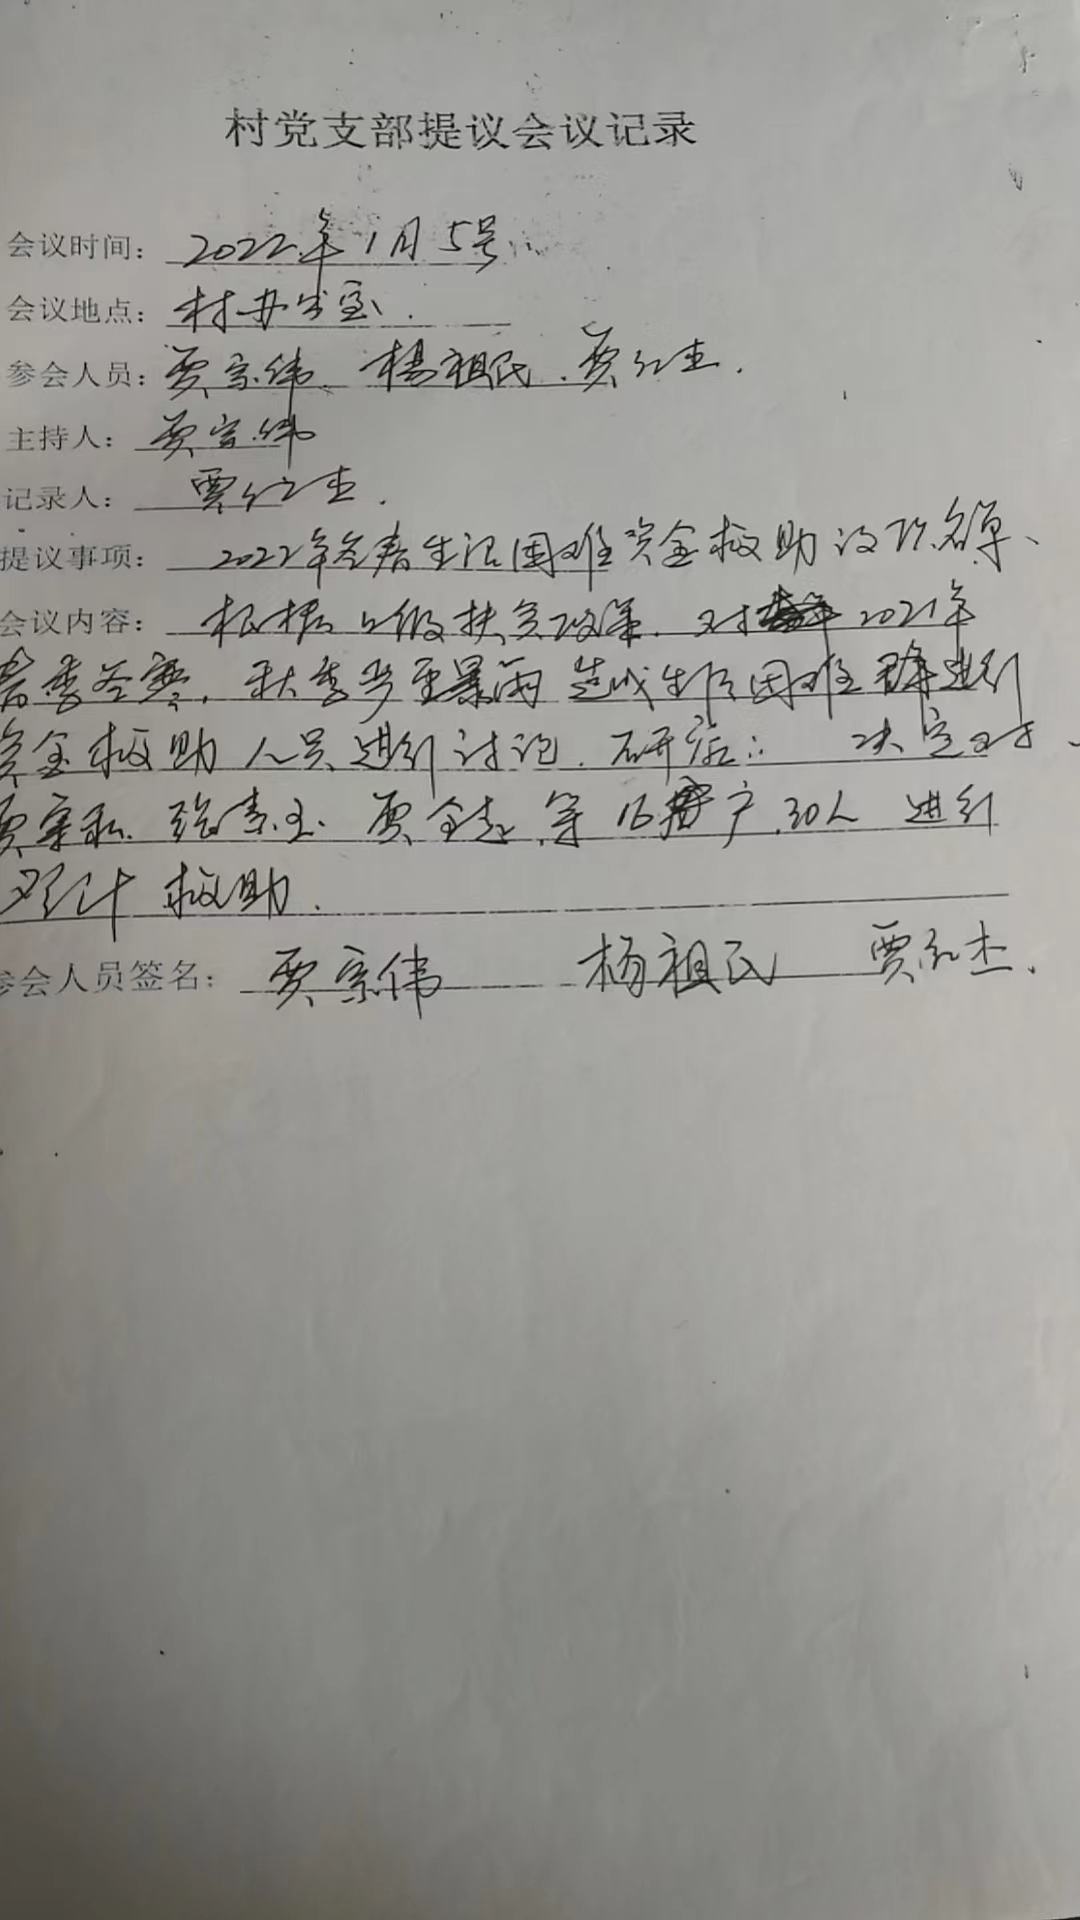 村党支部提议会议记录
会议时间: 2022年1月5号
会议地点: 村办公室.
参会人员: 贾宗伟、杨祖民、贾红杰.
主持人: 贾宗伟
记录人: 贾红杰.
提议事项: 2022年冬春生活困难资金救助 名单、
会议内容: 根据上级扶贫政策, 对 2021年
春季冬寒, 秋季 暴雨造成生活困难 进行
资金救助人员进行讨论. 研 决定对
贾宗 贾全 等16 户, 30人 进行
救助.
参会人员签名: 贾宗伟 杨祖民 贾红杰.